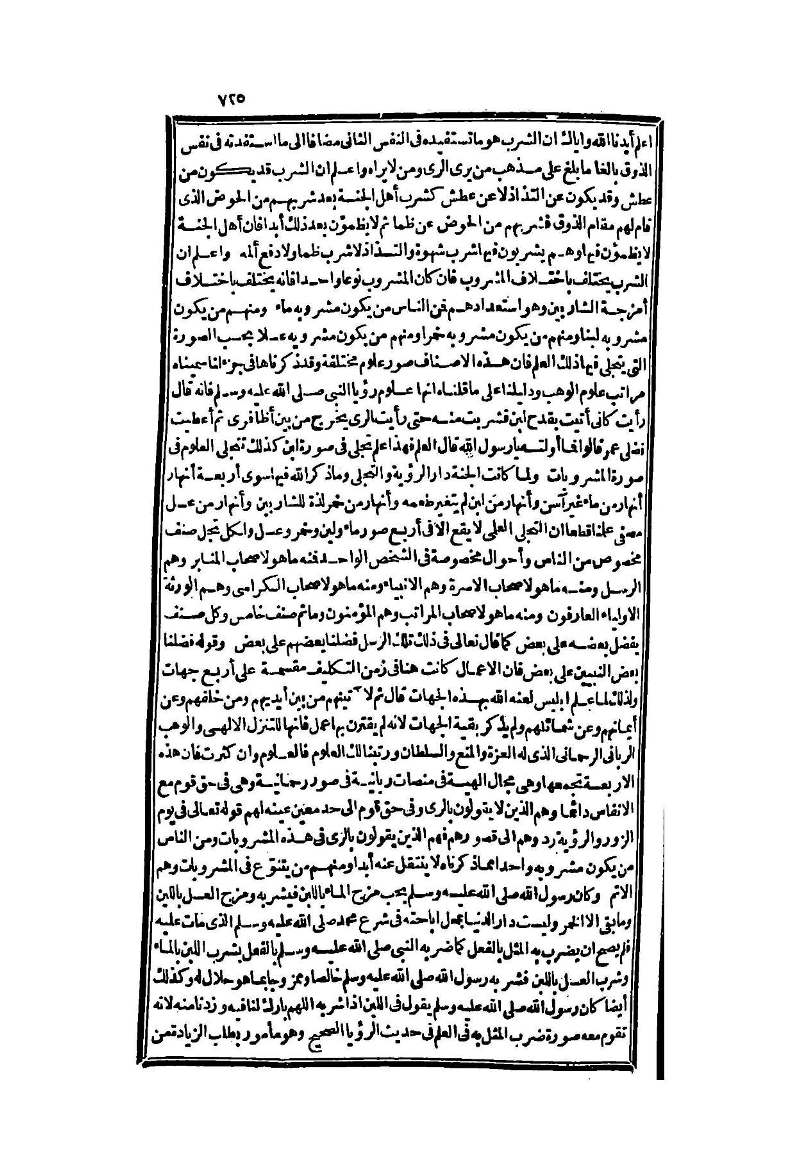 ٧٢٥
اعلم أيدنا الله واياك ان الشرب هو ما تستفيده فى النفس الثانى مضافا الى ما استفدته فى نفس
الذوق بالغا ما بلغ على مذهب من يرى الرى ومن لا يراه واعلم ان الشرب قد يكون من
عطش وقد يكون عن التذاذ لا عن عطش كشرب أهل الجنة بعد شربهم من الحوض الذى
قام لهم مقام الذوق فشربهم من الحوض عن ظما ثم لا يظمؤن بعد ذلك أبدا فان أهل الجنة
لا يظمؤن فيها وهم يشربون فيها شرب شهوة والتذاذ لا شرب ظما ولا دفع ألمه واعلم ان
الشرب يختلف باختلاف المشروب فان كان المشروب نوعا واحدا فانه يختلف باختلاف
أمزجة الشاربين وهو استعدادهم فمن الناس من يكون مشروبه ماء ومنهم من يكون
مشروبه لبنا ومنهم من يكون مشروبه خمرا ومنهم من يكون مشروبه عسلا بحسب الصورة
التى يتجلى فيها ذلك العلم فان هذه الاصناف صور علوم مختلفة وقد ذكرناها فى جزء لنا سميناه
مراتب علوم الوهب ودليلنا على ما قلناه انها علوم رؤيا النبى صلى الله عليه وسلم فانه قال
رأيت كانى أتيت بقدح لبن فشربت منه حتى رأيت الرى يخرج من بين أظافرى ثم أعطيت
فضلى عمر قالوا فما أولته يا رسول الله قال العلم فهذا علم تجلى فى صورة لبن كذلك تتجلى العلوم فى
صورة المشروبات ولما كانت الجنة دار الرؤية والتجلى وما ذكر الله فيها سوى أربعة أنهار
أنهار من ماء غير آسن وأنهار من لبن لم يتغير طعمه وأنهار من خمر لذة للشاربين وأنهار من عسل
مصفى علمنا قطعا ان التجلى العلمى لا يقع الا فى أربع صور ماء ولبن وخمر وعسل ولكل تجل صنف
مخصوص من الناس وأحوال مخصوصة فى الشخص الواحد فمنه ما هو لاصحاب المنابر وهم
الرسل ومنه ما هو لاصحاب الاسرة وهم الانبياء ومنه ما هو لاصحاب الكراسى وهم الورثة
الاولياء العارفون ومنه ما هو لاصحاب المراتب وهم المؤمنون وما ثم صنف خامس وكل صنف
يفضل بعضه على بعض كما قال تعالى فى ذلك تلك الرسل فضلنا بعضهم على بعض وقوله فضلنا
بعض النبيين على بعض فان الاعمال كانت هنا فى زمن التكليف مقسمة على أربع جهات
ولذلك لما علم ابليس لعنه الله بهذه الجهات قال ثم لآتينهم من بين أيديهم ومن خلفهم وعن
أيمانهم وعن شمائلهم ولم يذكر بقية الجهات لانه لم يقترن بها عمل فانها للتنزل الالهى والوهب
الربانى الرحمانى الذى له العزة والمنع والسلطان ورتبنا لك العلوم فالعلوم وان كثرت فان هذه
الاربعة تجمعها وهى مجال الهية فى منصات ربانية فى صور رحمانية وهى فى حق قوم مع
الانفاس دائما وهم الذين لا يقولون بالرى وفى حق قوم الى حد معين عينه لهم قوله تعالى فى يوم
الزور والرؤية ردوهم الى قصورهم فهم الذين يقولون بالرى فى هذه المشروبات ومن الناس
من يكون مشروبه واحدا مما ذكرناه لا ينتقل عنه أبدا ومنهم من يتنوّع فى المشروبات وهم
الاتم وكان رسول الله صلى الله عليه وسلم يحب مزج الماء باللبن فيشربه ومزج العسل باللبن
وما بقى الا الخمر وليست دار الدنيا بمحل اباحته فى شرع محمد صلى الله عليه وسلم الذى مات عليه
فلم يصح ان يضرب به المثل بالفعل كما ضربه النبى صلى الله عليه وسلم بالفعل بشرب اللبن بالماء
وشرب العسل باللبن فشربه رسول الله صلى الله عليه وسلم خالصا وممزوجا بما هو حلال له وكذلك
أيضا كان رسول الله صلى الله عليه وسلم يقول فى اللبن اذا شربه اللهم بارك لنا فيه وزدنا منه لانه
تقوم معه صورة ضرب المثل به فى العلم فى حديث الرؤيا الصحيح وهو مأمور بطلب الزيادة من